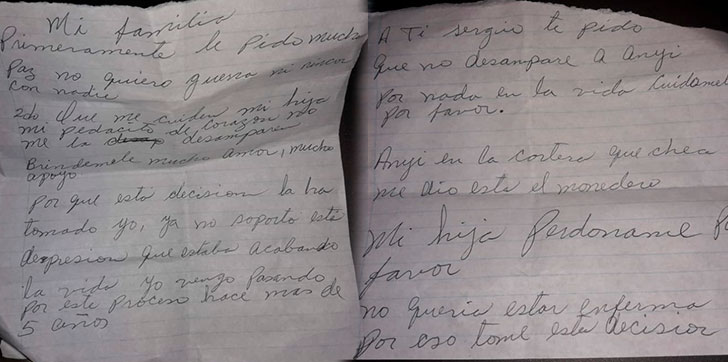 Mi familia
Primeramente le Pido mucha
Paz no quiero guerra ni rincor
con nadie
2do Que me cuiden mi hija
mi pedacito de corazon no
me la desamparen
Brindemele mucho amor, mucho
apoyo
Por que esta decision la ha
tomado yo, ya no soporto esta
depresion que estaba acabando
la vida yo vengo pasando
por este proceso hace mas de
5 años
A Ti sergio te pido
que no desampare a Anyi
por nada en la vida Cuidamel
Por favor.
Anyi en la cartera que chea
me dio esta el monedero
Mi hija Perdoname P
favor
no queria estar enferma
Por eso tome esta decision